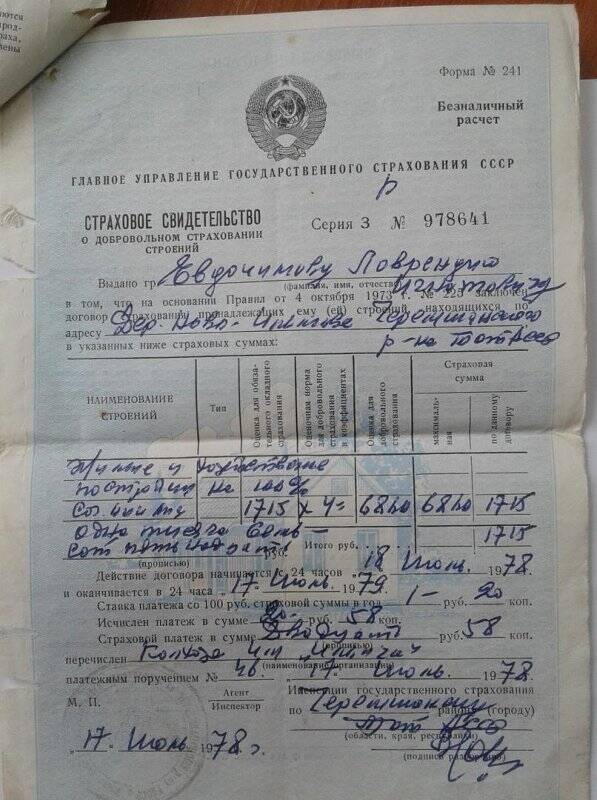 Форма № 241
Безналичный
расчет
ГЛАВНОЕ УПРАВЛЕНИЕ ГОСУДАРСТВЕННОГО СТРАХОВАНИЯ СССР
СТРАХОВОЕ СВИДЕТЕЛЬСТВО
О ДОБРОВОЛЬНОМ СТРАХОВАНИИ
СТРОЕНИЙ
Серия З № 978641
Выдано гр. Евдокимову Лаврентию
(фамилия, имя, отчество)
в том, что на основании Правил от 4 октября 1973 г. № 225 заключен
договор страхования принадлежащих ему (ей) строений, находящихся по
адресу Дер. Ново- Черемшанского
в указанных ниже страховых суммах: р-на
НАИМЕНОВАНИЕ
СТРОЕНИЙ
Тип
Оценка для обяза-
тельного окладного
страхования
Оценочная норма
для добровольного
страхования
и коэффициентах
Оценка для
добровольного
страхования
Страховая
сумма
максималь-
ная
по данному
договору
Жилые и хозяйствен
постройки на 100%
1715 х 4= 6860 6860 1715
одна тысяча семь- 1715
сот пятнадцать Итого руб.
(прописью) руб.
Действие договора начинается с 24 часов 18 Июль 1978.
и оканчивается в 24 часа 17 Июль 1979
Ставка платежа со 100 руб. страховой суммы в год 1- руб. 20 коп.
Исчислен платеж в сумме 20. 58
Страховой платеж в сумме Двадцать руб. 58 коп.
(прописью)
перечислен Колхоза им
(наименование организации)
платежным поручением № 46 Июль 1978.
М. П.
Агент
Инспектор
Инспекции государственного страхования
по Черемшанскому району (городу)
(области, края, республики)
(подпись разборчиво)
„17“ Июль 1978 г.